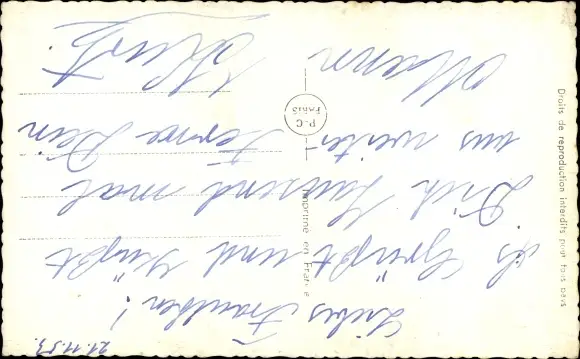 21.11.53.
Liebes Frauchen!
Es Grüßt und Küßt
Dich Tausend mal
aus weiter Ferne Dein
Mann Kurt
Droits de reproduction interdits pour tous pays
Imprimé en France
P-C
PARIS